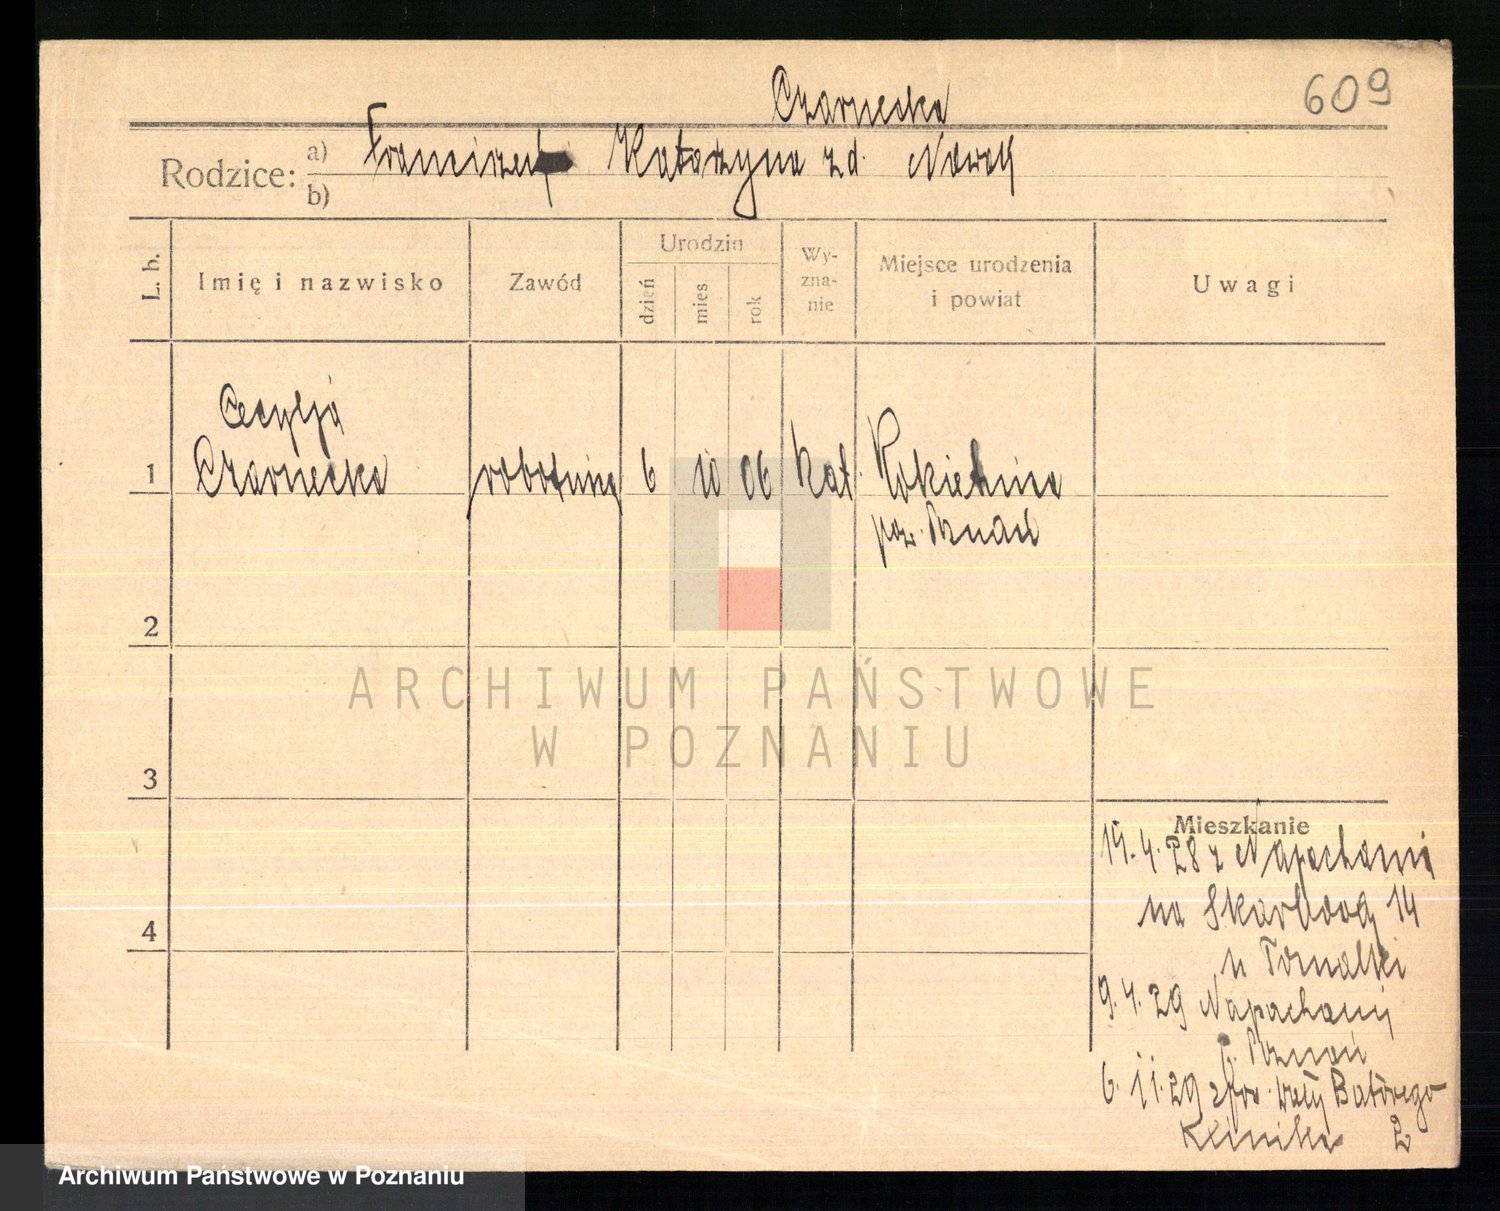 609
Czarnecka
Rodzice: a) Franciszek Katarzyna z d. Nowak
b)
L. b. Imię i nazwisko Zawód Urodzin dzień mies rok Wy-zna-nie Miejsce urodzenia i powiat Uwagi
Cecylja
1 Czarnecka robotnica 6 10 06 kat. Rokietnica
pow. Poznań
2
ARCHIWUM PAŃSTWOWE
W POZNANIU
3
Mieszkanie
4.28 z Napachania
na Skarbową 14
u
4
9.4.29 Napachanij
p. Poznań
6.11.29 Wały Batorego
Klinika 2
Archiwum Państwowe w Poznaniu